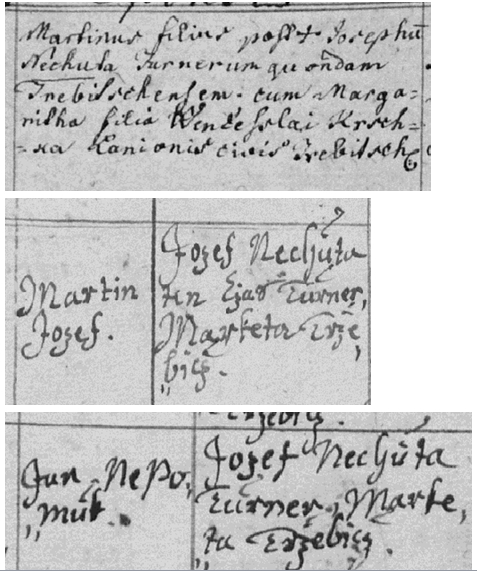 Martinus filius post + Josephũ
Nechuta Turnerum quondam
Trebitschensem cum Marga=
ritha filia Wenceslai Krsch=
=ka Lanionis civis Trebitsch
Martin
Jozef.
Jozef Nechuta
ten čzas Turner,
Marketa Trže
bicz.
Jan Nepo,
„mut.
Jozef Nechuta
Turner, Marke,
ta Tržebicz